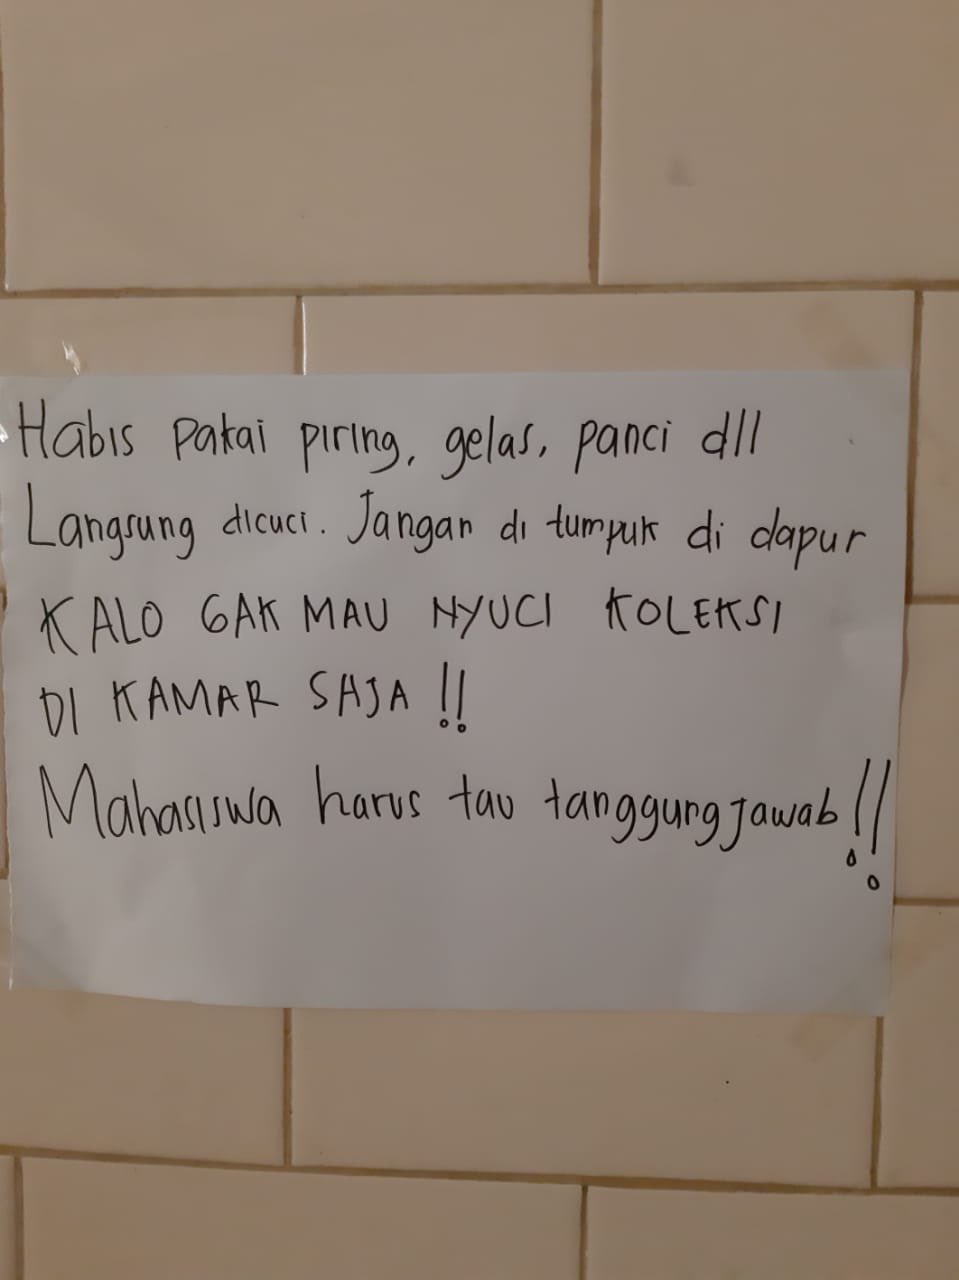 Habis Pakai piring, gelas, panci dll
Langsung dicuci. Jangan di tumpuk di dapur
KALO GAK MAU NYUCI KOLEKSI
DI KAMAR SAJA !!
Mahasiswa harus tau tanggung jawab !!